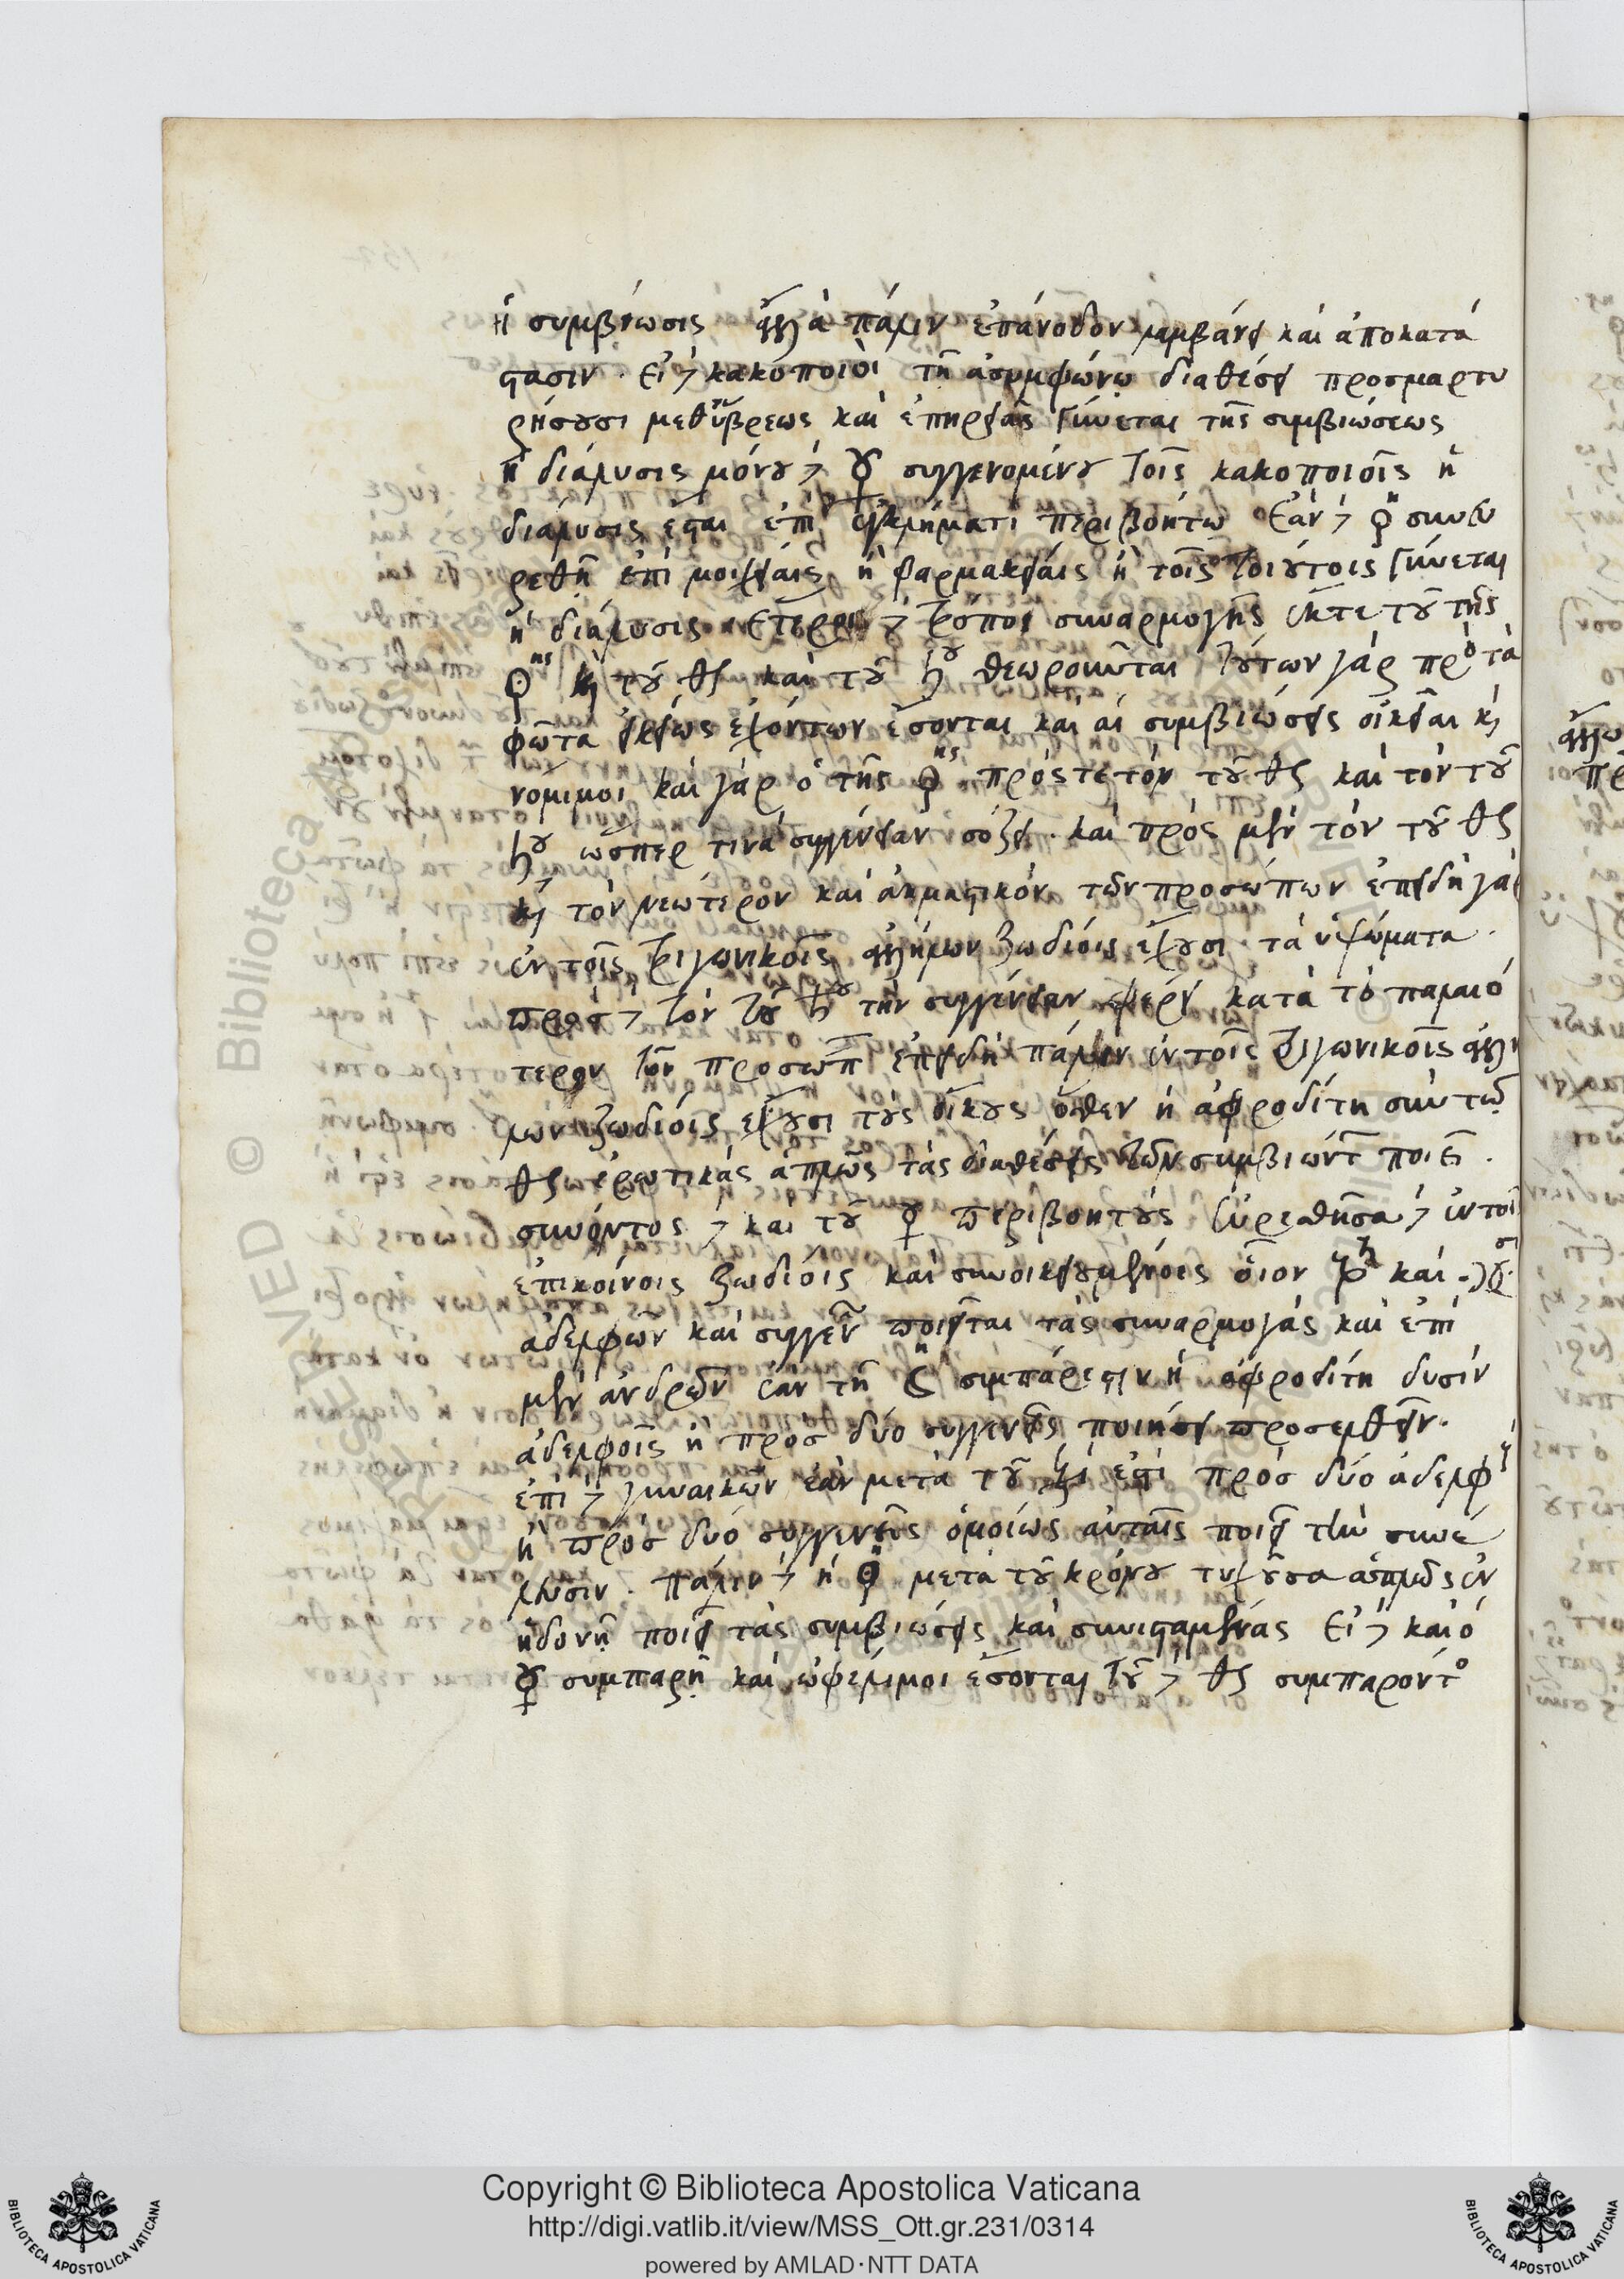 ἡ συμβίωσις ἀλλὰ πάλιν ἐπάνοδον λαμβάνει καὶ ἀποκατά
στασιν. εἰ δὲ κακοποιοὶ τῇ ἀσυμφώνῳ διαθέσει προσμαρτυ
ρήσουσι μεθ' ὕβρεως καὶ ἐπηρείας γίνεται τῆς συμβιώσεως
ἡ διάλυσις μόνου δὲ ☿ συγγενομένου τοῖς κακοποιοῖς ἡ
διάλυσις ἔσται ἐπὶ ἐγκλήματι περιβοήτω ἐὰν δὲ ♀ συνευ
ρεθῇ ἐπὶ μοιχείαις ἢ φαρμακείαις ἢ τοῖς τοιούτοις γίνεται
ἡ διάλυσις. ἕτεροι δὲ τρόποι συναρμογῆς ἔκ τε τοῦ τῆς
♀ης καὶ τοῦ ♂ καὶ τοῦ ♄ου θεωροῦνται τούτων γὰρ πρὸ τὰ
φῶτα οἰκείως ἐχόντων ἔσονται καὶ αἱ συμβιώσεις οἰκεῖαι κὶ
νόμιμοι καὶ γὰρ ὁ τῆς ♀ης πρός τε τὸν τοῦ ♂ καὶ τὸν τοῦ
♄ου ὥσπερ τινὰ συγγένειαν σόζει. καὶ πρὸς μὲν τὸν τοῦ ♂
κὶ τὸν νεώτερον καὶ ἀκμαστικὸν τῶν προσώπων ἐπειδὴ γὰρ
ἐν τοῖς τριγωνικοῖς ἀλλήλων ζωδίοις ἔχουσι τὰ ὑψώματα.
πρὸς δὲ τὸν τοῦ ♄ου τὴν συγγένειαν φέρει κατὰ τὸ παλαιό
τερον τῶν προσωπ ἐπειδὴ πάλιν ἐν τοῖς τριγωνικοῖς ἀλλή
λων ζωδίοις ἔχουσι τοὺς οἴκους ὅθεν ἡ ἀφροδίτη σὺν τῷ
♂ ἐρωτικὰς ἁπλῶς τὰς διαθέσεις τῶν συμβιώντ ποιεῖ.
συνόντος δὲ καὶ τοῦ ☿ περιβοητοὺς εὑρεθῆσα δὲ ἐν τοῖς
ἐπικοίνοις ζωδίοις καὶ συνοικειουμένοις οἷον ♑ καὶ ♎.
ἀδελφῶν καὶ συγγεν ποιεῖται τὰς συναρμογὰς καὶ ἐπὶ
μὲν ἀνδρῶν ἐὰν τῇ ☾ συμπάρεστιν ἡ ἀφροδίτη δυσὶν
ἀδελφοῖς ἢ πρὸς δύο συγγενεῖς ποιήσει προσελθεῖν.
ἐπὶ δὲ γυναικῶν ἐὰν μετὰ τοῦ ἐστὶ πρὸς δύο ἀδελφ
ἢ πρὸς δύο συγγενεῖς ὁμοίως αὐταῖς ποιεῖ τὴν συνέ
λευσιν. πάλιν δὲ ἡ ♀ μετὰ τοῦ κρόνου τυχοῦσα ἁπλῶς ἐν
ἡδονῇ ποιεῖ τὰς συμβιώσεις καὶ συνισταμένας εἰ δὲ καὶ ὁ
☿ συμπαρῇ καὶ ὠφέλιμοι ἔσονται τοῦ δὲ ♂ συμπαρόντο
Copyright © Biblioteca Apostolica Vaticana
http://digi.vatlib.it/view/MSS_Ott.gr.231/0314
powered by AMLAD·NTT DATA
BIBLIOTECA APOSTOLICA VATICANA
BIBLIOTECA APOSTOLICA VATICANA